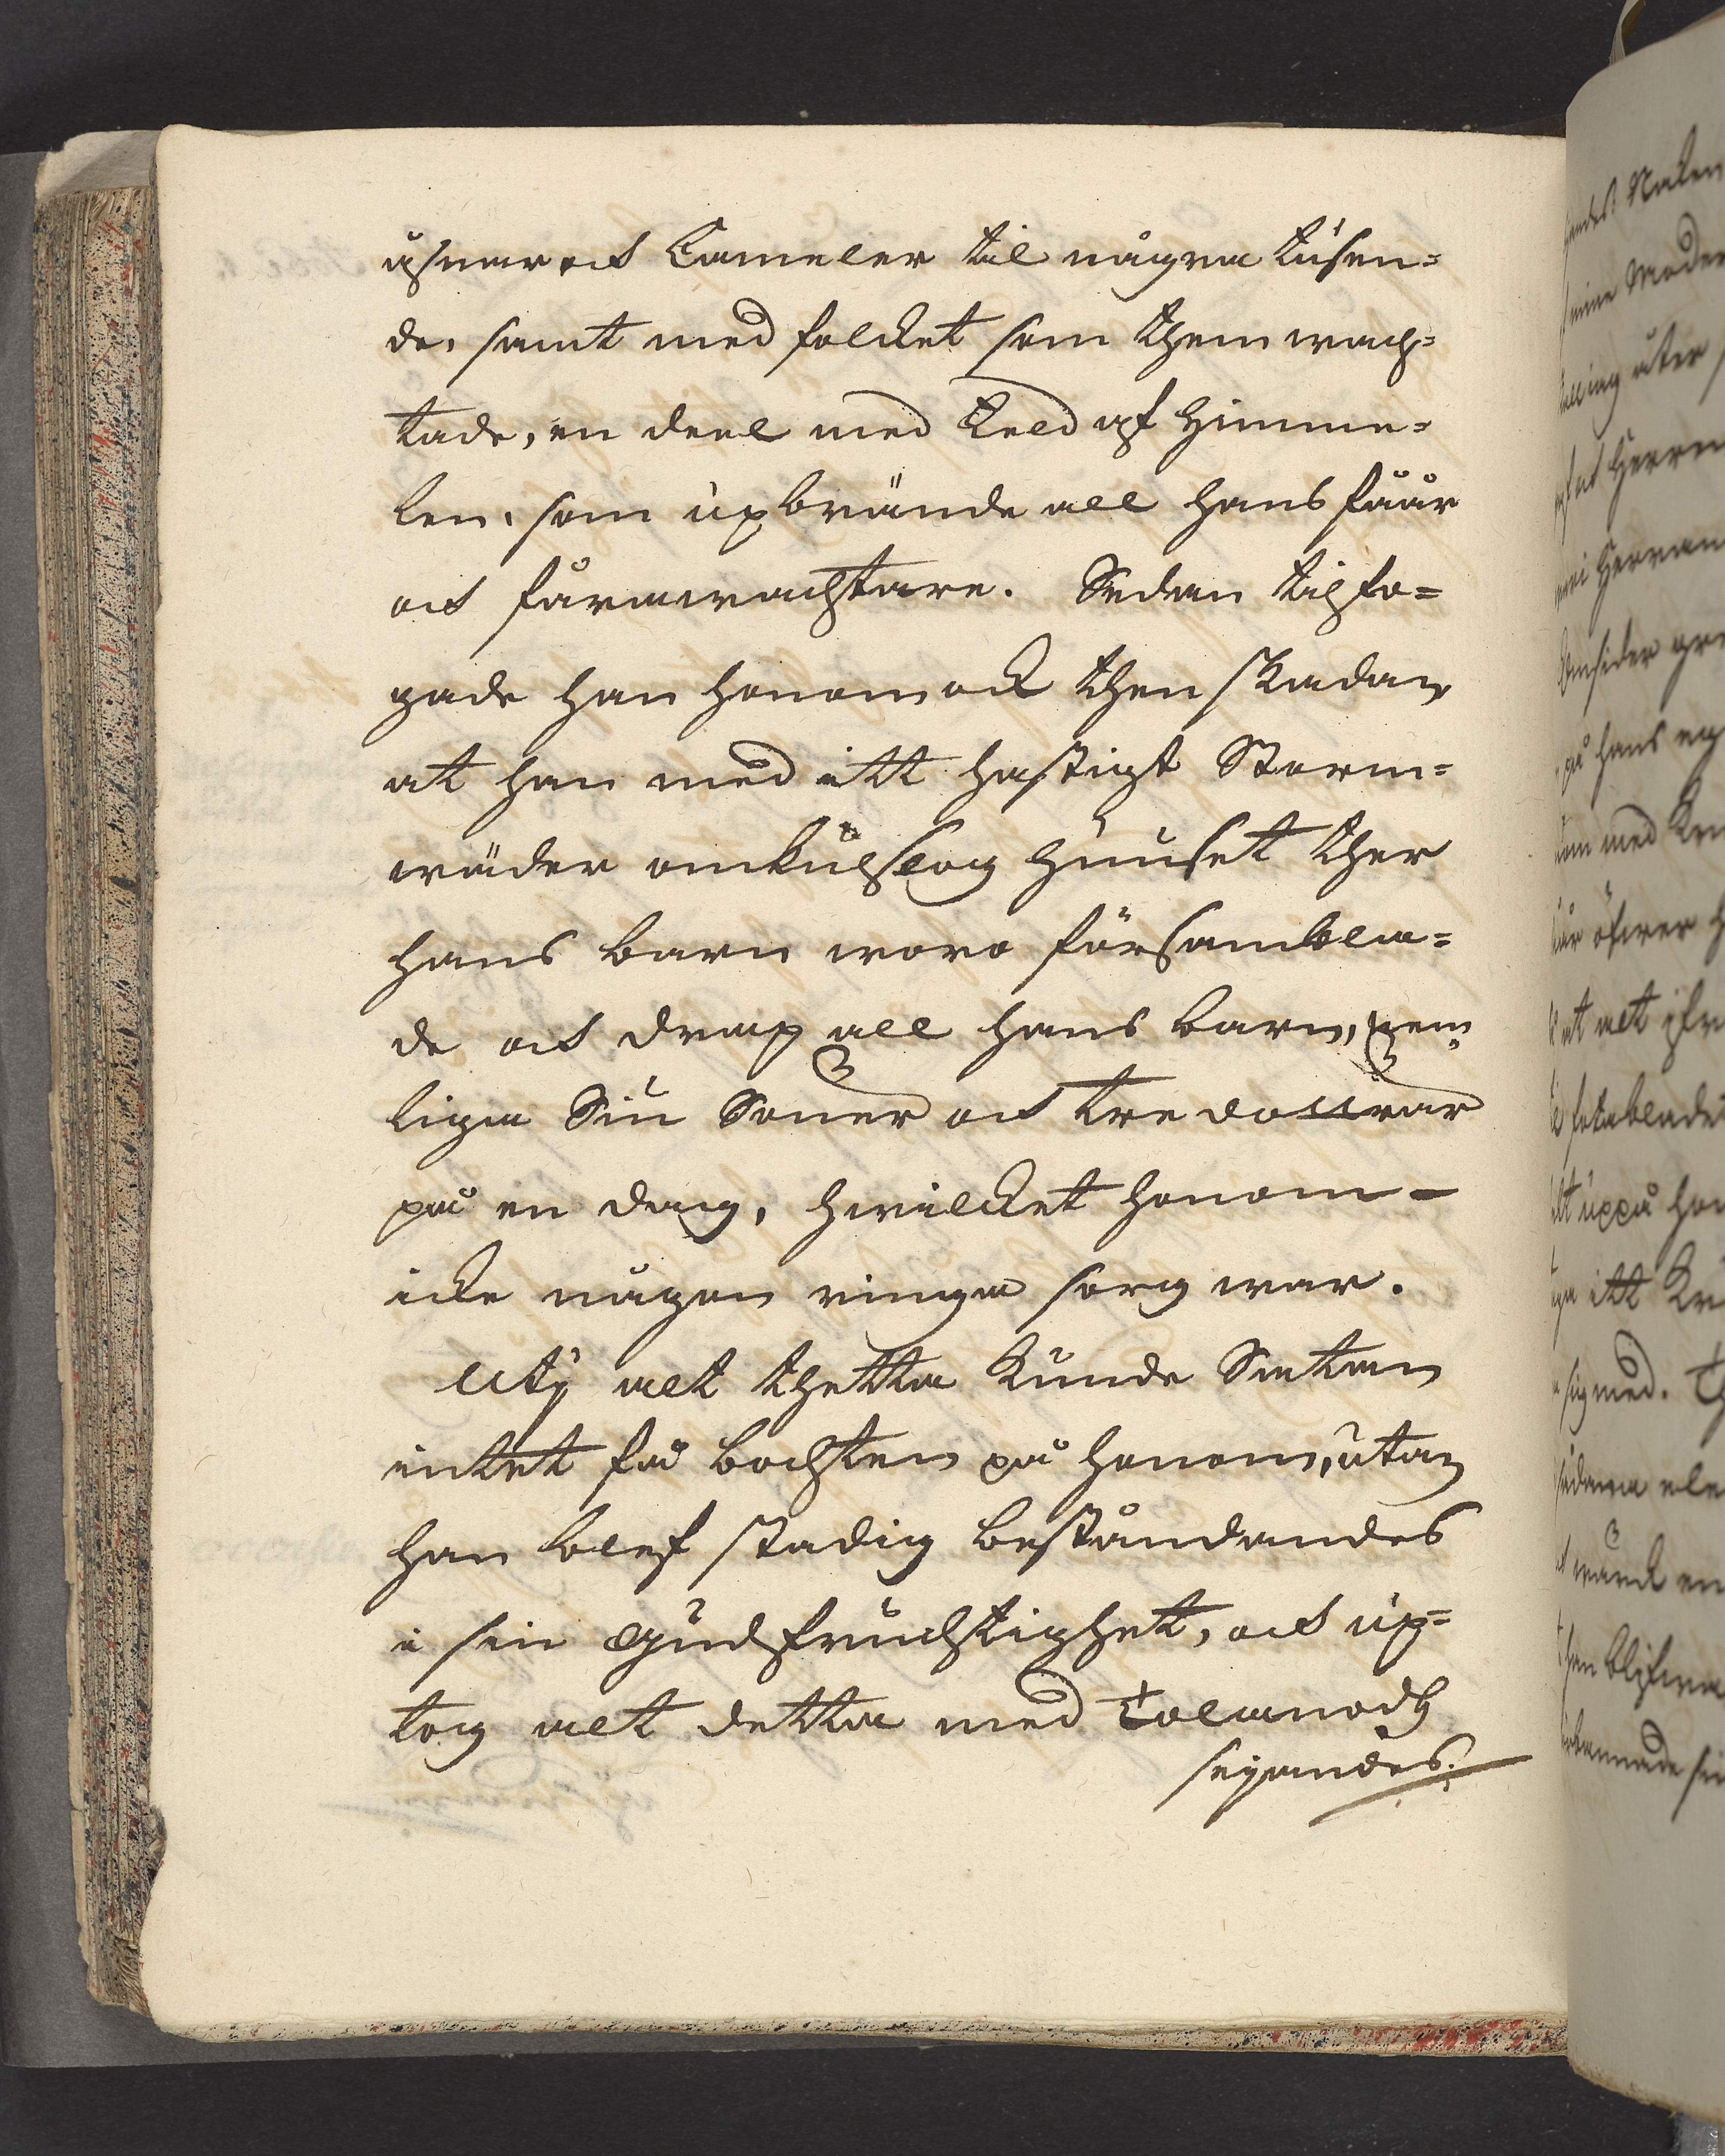 åsnar och Cameler til några tusen=
de, samt med folcket som them wach=
tade, en deel med Eeld af Himme=
len, som upbrände all hans fåår
och fårawachtare. Sedan tilfo=
gade han honom ock then skadan
at han med itt hastigt Storm=
wäder omkulslog Huuset ther
hans barn woro försambla=
de och drap all hans barn, nem=
ligen Siu Söner och tre döttrar
på en dag, hwilcket honom
icke någon ringa sorg war.
Uti alt thetta kunde Satan
intet få bochten på honom, utan
han blef stadig beståndandes
i sin Gudsfruchtighet, och up=
tog alt detta med Tolamodh
seijandes: